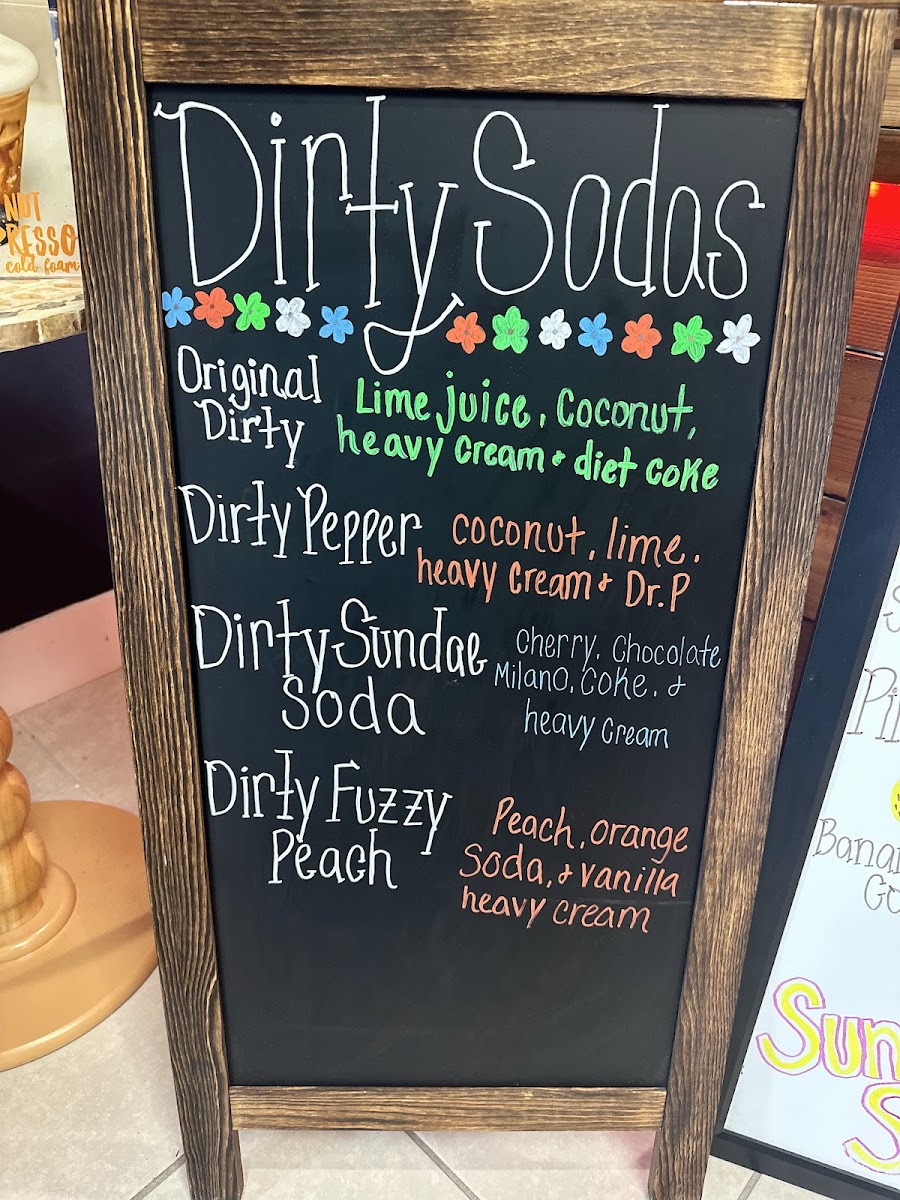 Dirty Sodas
Original
Dirty
Lime juice, Coconut,
heavy cream & diet coke
Dirty Pepper
coconut, lime,
heavy cream & Dr.P
Dirty Sundae
Soda
Cherry, Chocolate
Milano, Coke, &
heavy cream
Dirty Fuzzy
Peach
Peach, orange
Soda, & vanilla
heavy cream
NUT
RESSO
cold foam
Sun